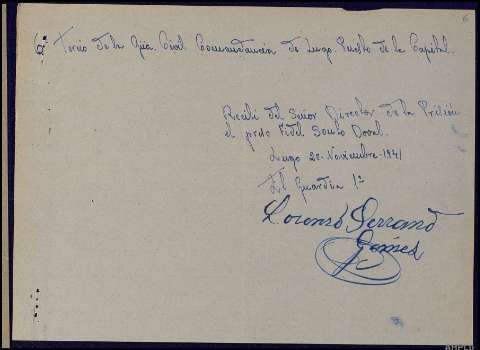 6
6º Tercio de la Gua. Civil Comandancia de Lugo. Puesto de la Capital.
Recibi del Señor Director de la Prisión
el preso Fidel Souto Doval.
Lugo 20-Noviembre-1941
El Guardia 1º
Lorenzo Serrano
Gómez